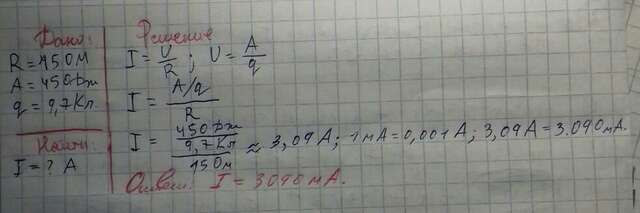 Дано:
R = 15 Ом
A = 450 Дж
q = 9,7 Кл.
Найти:
I = ? A
Решение
I = U/R ; U = A/q
I = (A/q)/R
I = (450 Дж/9,7 Кл)/15 Ом ≈ 3,09 А; 1 мА = 0,001 А; 3,09 А = 3.090 мА.
Ответ: I = 3090 мА.